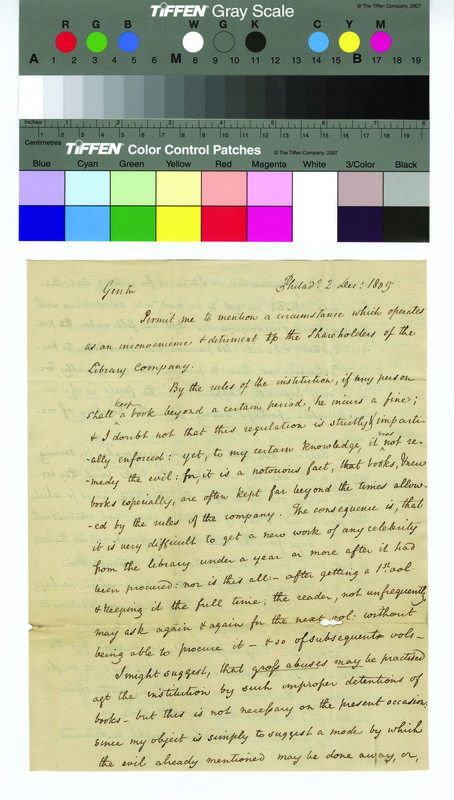 TIFFEN Gray Scale © The Tiffen Company, 2007
R G B W G K C Y M
A 1 2 3 4 5 6 M 8 9 10 11 12 13 14 15 B 17 18 19
Inches 1 2 3 4 5 6 7 8
Centimetres 1 2 3 4 5 6 7 8 9 10 11 12 13 14 15 16 17 18 19
TIFFEN Color Control Patches © The Tiffen Company, 2007
Blue Cyan Green Yellow Red Magenta White 3/Color Black
Philada. 2 Dec: 1809
Gentn
Permit me to mention a circumstance which operates
as an inconvenience & detriment to the Shareholders of the
Library Company.
By the rules of the institution, if any person
shall keep a book beyond a certain period, he incurs a fine;
& I doubt not that this regulation is strictly & imparti-
-ally enforced: yet, to my certain knowledge, it does not re-
-medy the evil: for, it is a notorious fact, that books, & new
books especially, are often kept far beyond the times allow-
-ed by the rules of the company. The consequence is, that
it is very difficult to get a new work of any celebrity
from the library under a year or more after it had
been procured: nor is this all - after getting a 1st vol.
& keeping it the full time, the reader, not unfrequently,
may ask again & again for the next vol. without
being able to procure it - & so of subsequent vols -
I might suggest, that gross abuses may be practised
agt the institution by such improper detentions of
books - but this is not necessary on the present occasion,
since my object is simply to suggest a mode by which
the evil already mentioned may be done away, or,